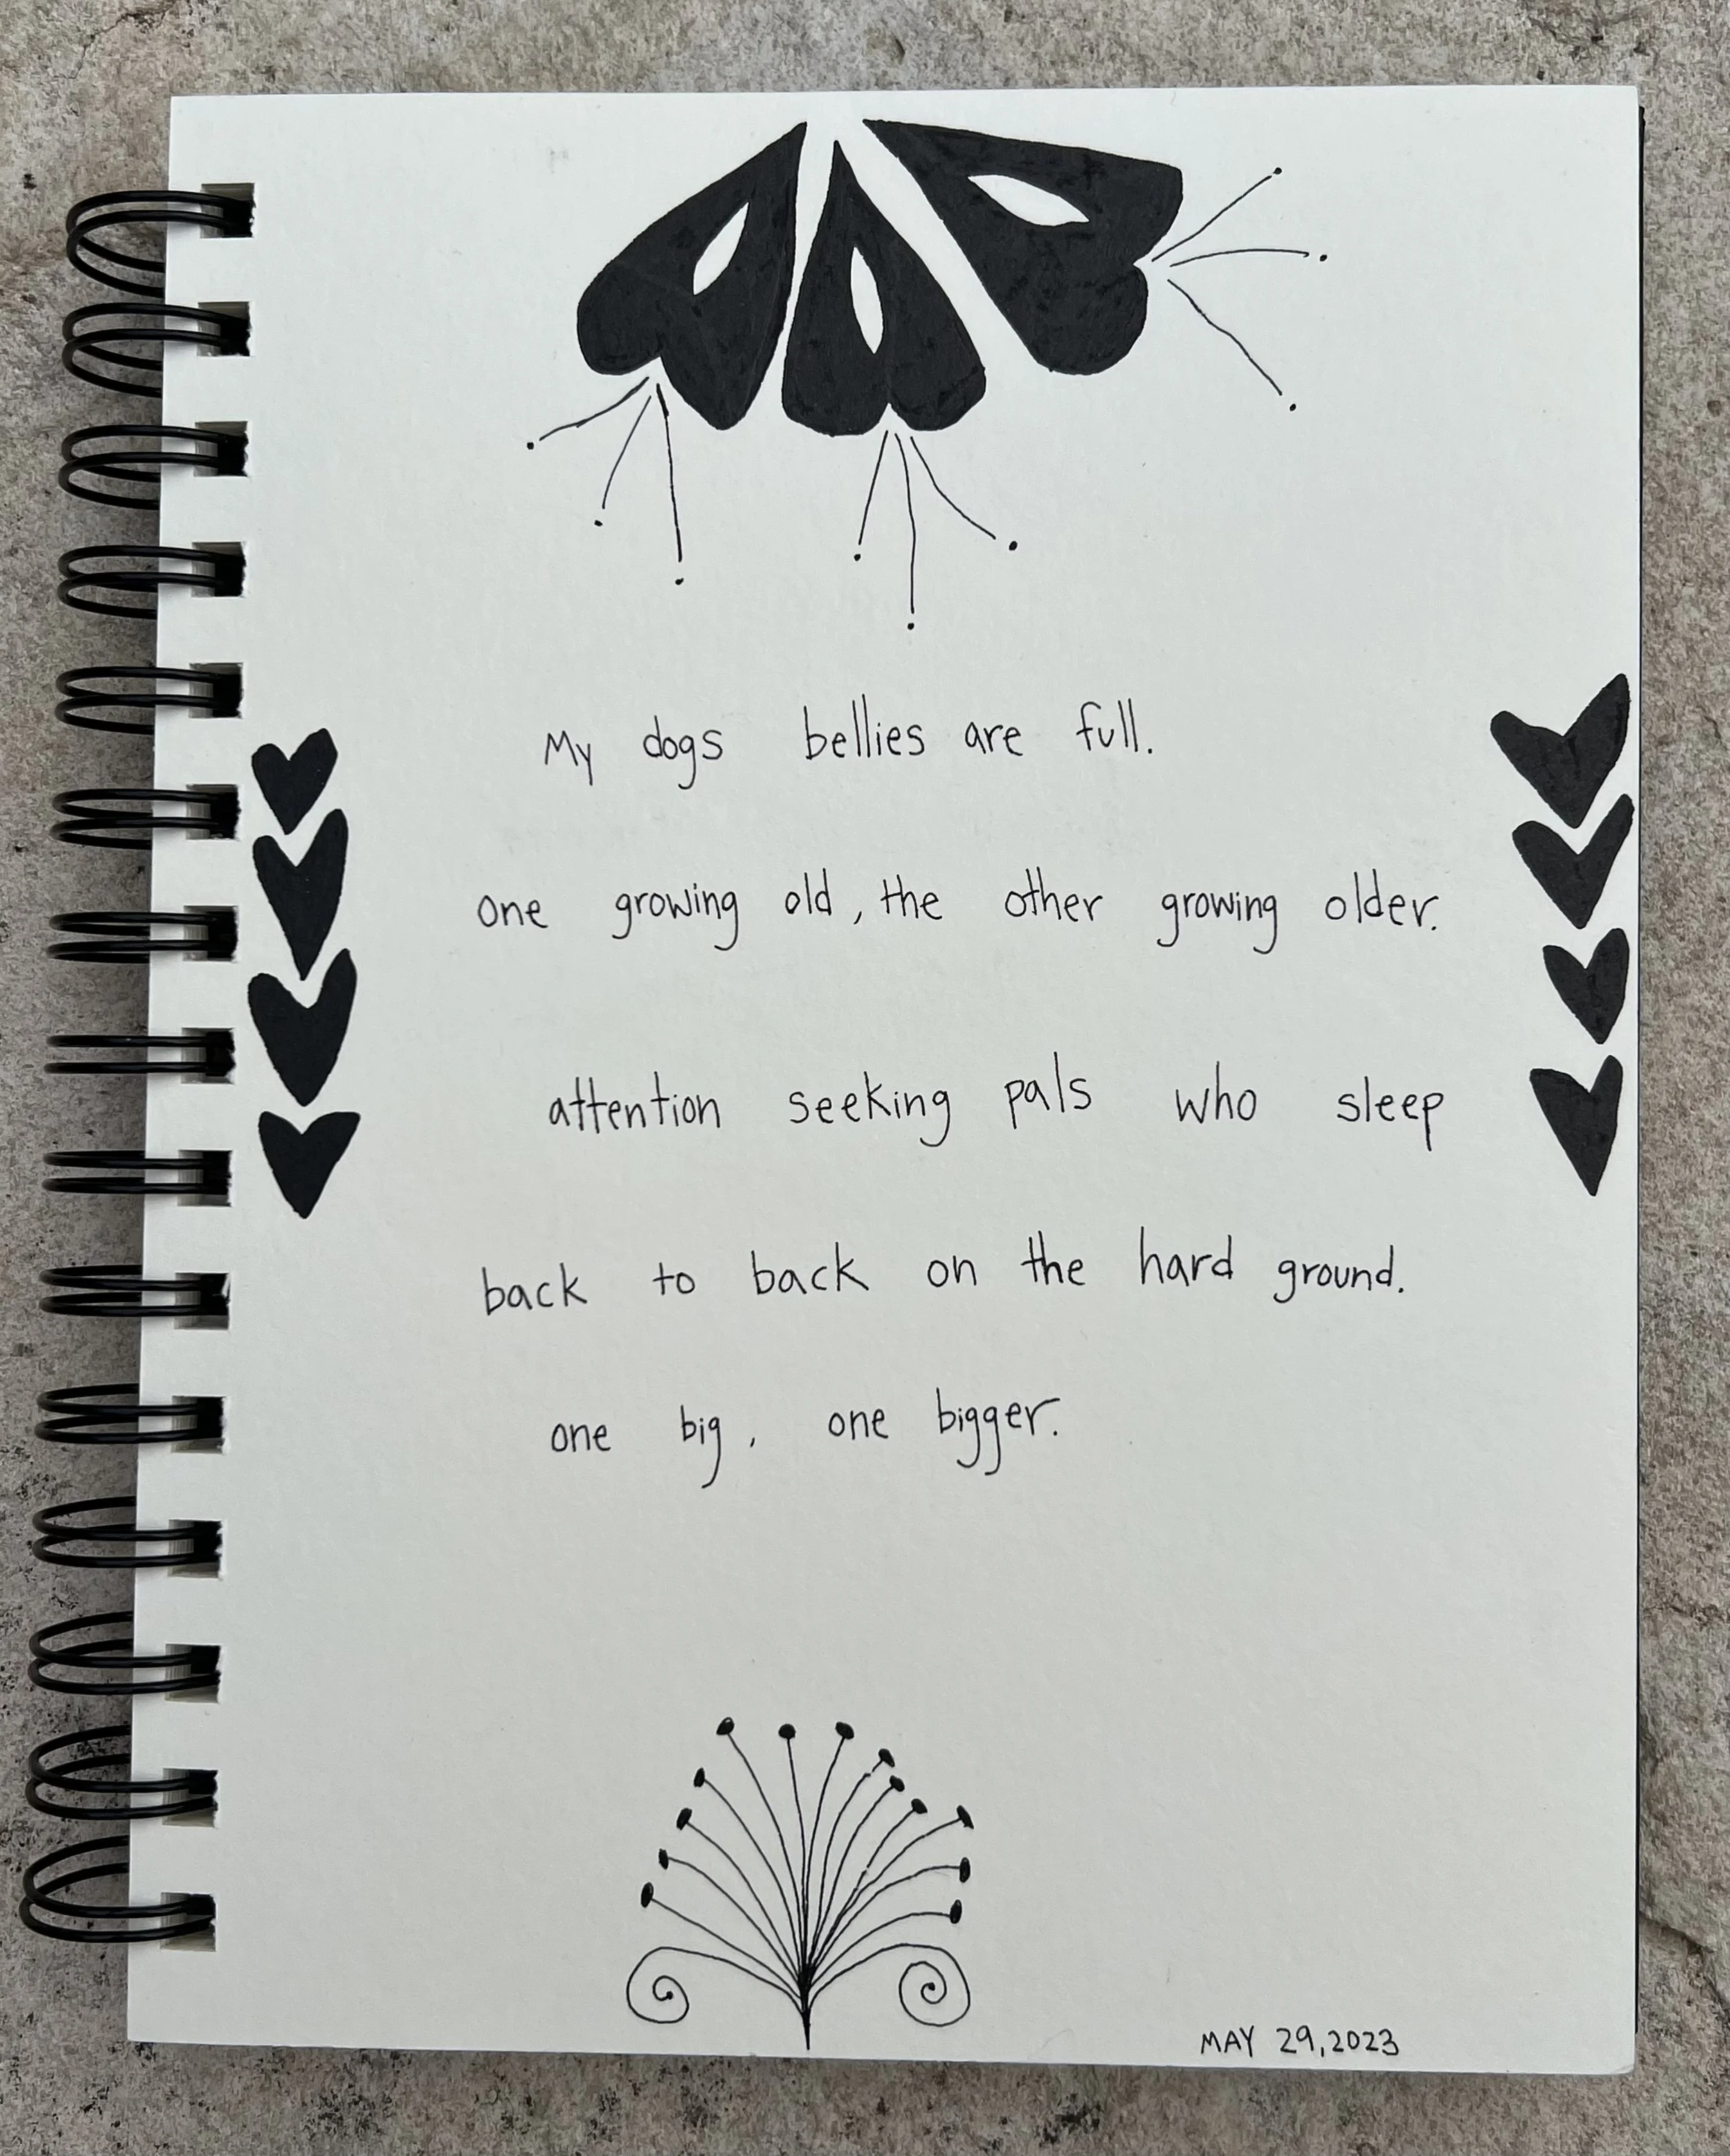 My dogs bellies are full.
one growing old, the other growing older.
attention seeking pals who sleep
back to back on the hard ground.
one big, one bigger.
MAY 29, 2023